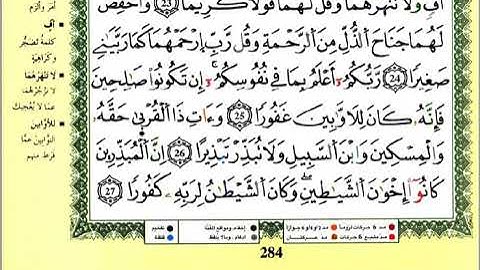 أُفٍّ وَلَا تَنْهَرْهُمَا وَقُل لَّهُمَا قَوْلًا كَرِيمًا ٢٣ وَاخْفِضْ
لَهُمَا جَنَاحَ الذُّلِّ مِنَ الرَّحْمَةِ وَقُل رَّبِّ ارْحَمْهُمَا كَمَا رَبَّيَانِي
صَغِيرًا 24 رَّبُّكُمْ أَعْلَمُ بِمَا فِي نُفُوسِكُمْ إِن تَكُونُوا صَالِحِينَ
فَإِنَّهُ كَانَ لِلْأَوَّابِينَ غَفُورًا 25 وَءَاتِ ذَا الْقُرْبَىٰ حَقَّهُ
وَالْمِسْكِينَ وَابْنَ السَّبِيلِ وَلَا تُبَذِّرْ تَبْذِيرًا 26 إِنَّ الْمُبَذِّرِينَ
كَانُوا إِخْوَانَ الشَّيَاطِينِ وَكَانَ الشَّيْطَانُ لِرَبِّهِ كَفُورًا 27
أمر وألزم
أُفٍّ
كلمة تضجّر
وكراهية
لا تنهرهما
لا تزجرهما
عمّا لا يعجبك
للأوّابين
التوّابين عمّا
فرط منهم
مد 6 حركات لزوماً
مد 2 أو 4 أو 6 جوازاً
إخفاء، ومواقع الغنّة
تفخيم
مد حركتان
إدغام، وما لا يُلفظ
قلقلة
284